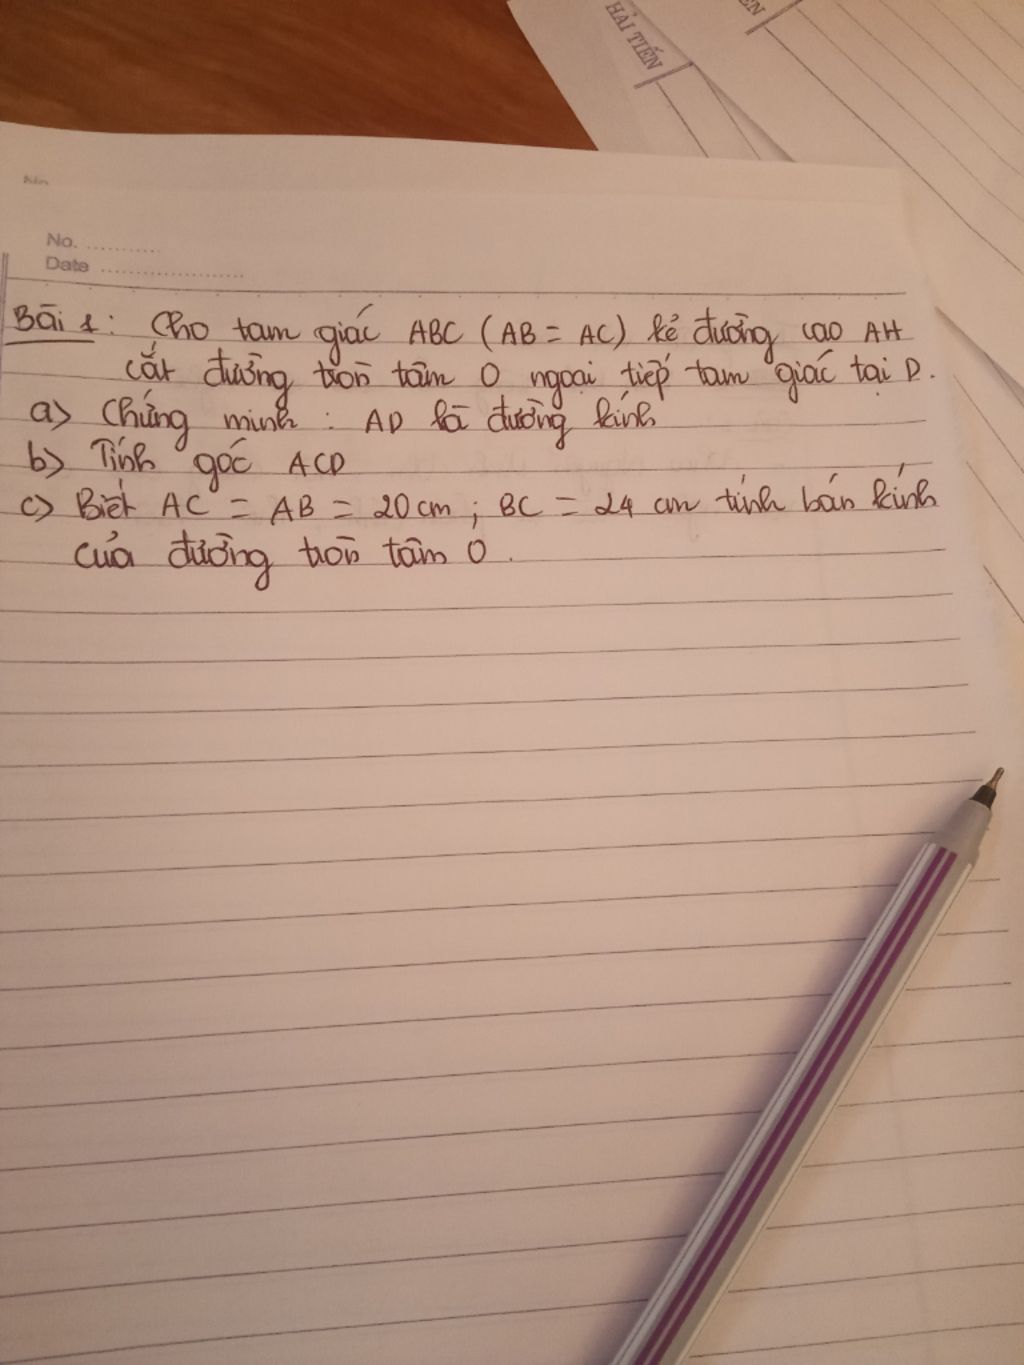 HẢI TIẾN
ẾN
No. ............
Date ........................
Bài 1: Cho tam giác ABC (AB = AC) kẻ đường cao AH
cắt đường tròn tâm O ngoại tiếp tam giác tại D.
a) Chứng minh : AD là đường kính
b) Tính góc ACD
c) Biết AC = AB = 20 cm ; BC = 24 cm tính bán kính
của đường tròn tâm O.